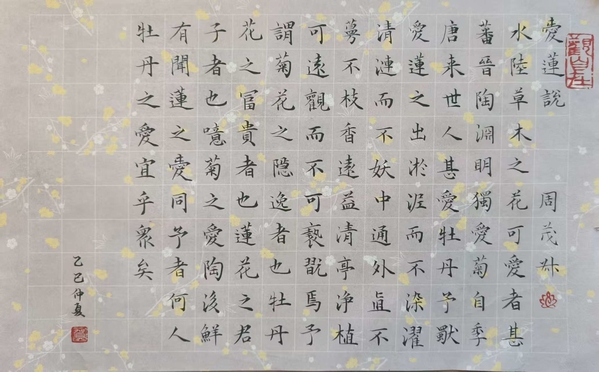 觀自在
愛蓮說 周茂叔
水陸草木之花可愛者甚
蕃晉陶淵明獨愛菊自李
唐来世人甚愛牡丹予獨
愛蓮之出淤泥而不染濯
清漣而不妖中通外直不
蔓不枝香遠益清亭净植
可遠觀而不可褻翫焉予
謂菊花之隐逸者也牡丹
花之冨貴者也蓮花之君
子者也噫菊之愛陶後鮮
有聞蓮之愛同予者何人
牡丹之愛宜乎眾矣
乙巳仲夏